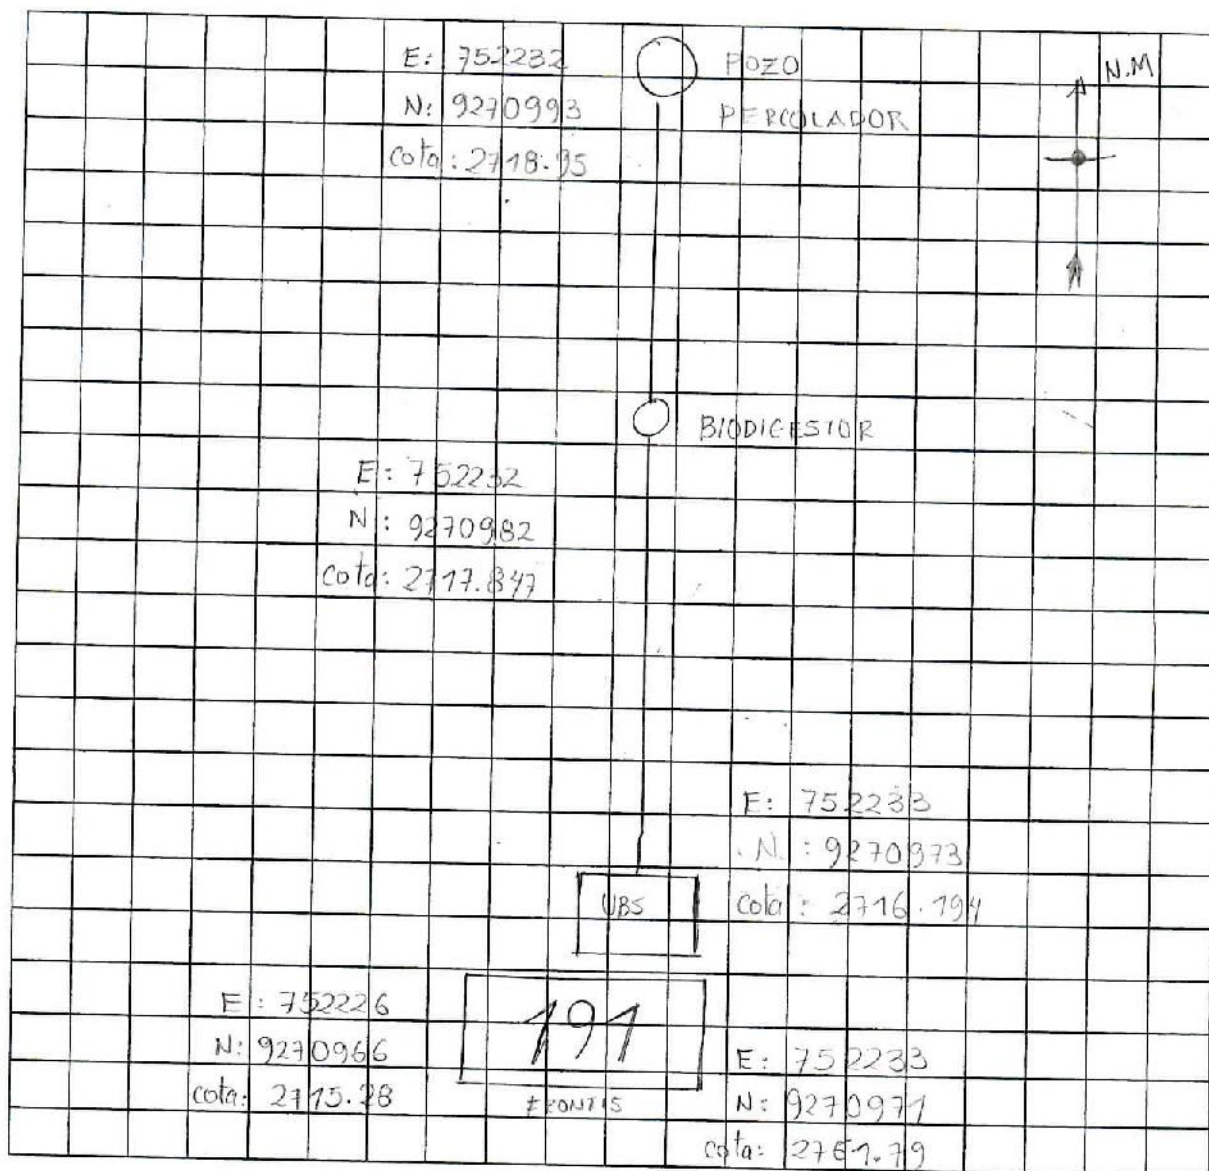 E: 752232
N: 9270993
cota: 2718.95
POZO
PERCOLADOR
N.M
BIODIGESTOR
E: 752232
N: 9270982
cota: 2717.847
E: 752233
N: 9270973
cota: 2716.194
UBS
E: 752226
N: 9270966
cota: 2715.28
191
E: 752233
N: 9270971
cota: 2761.79